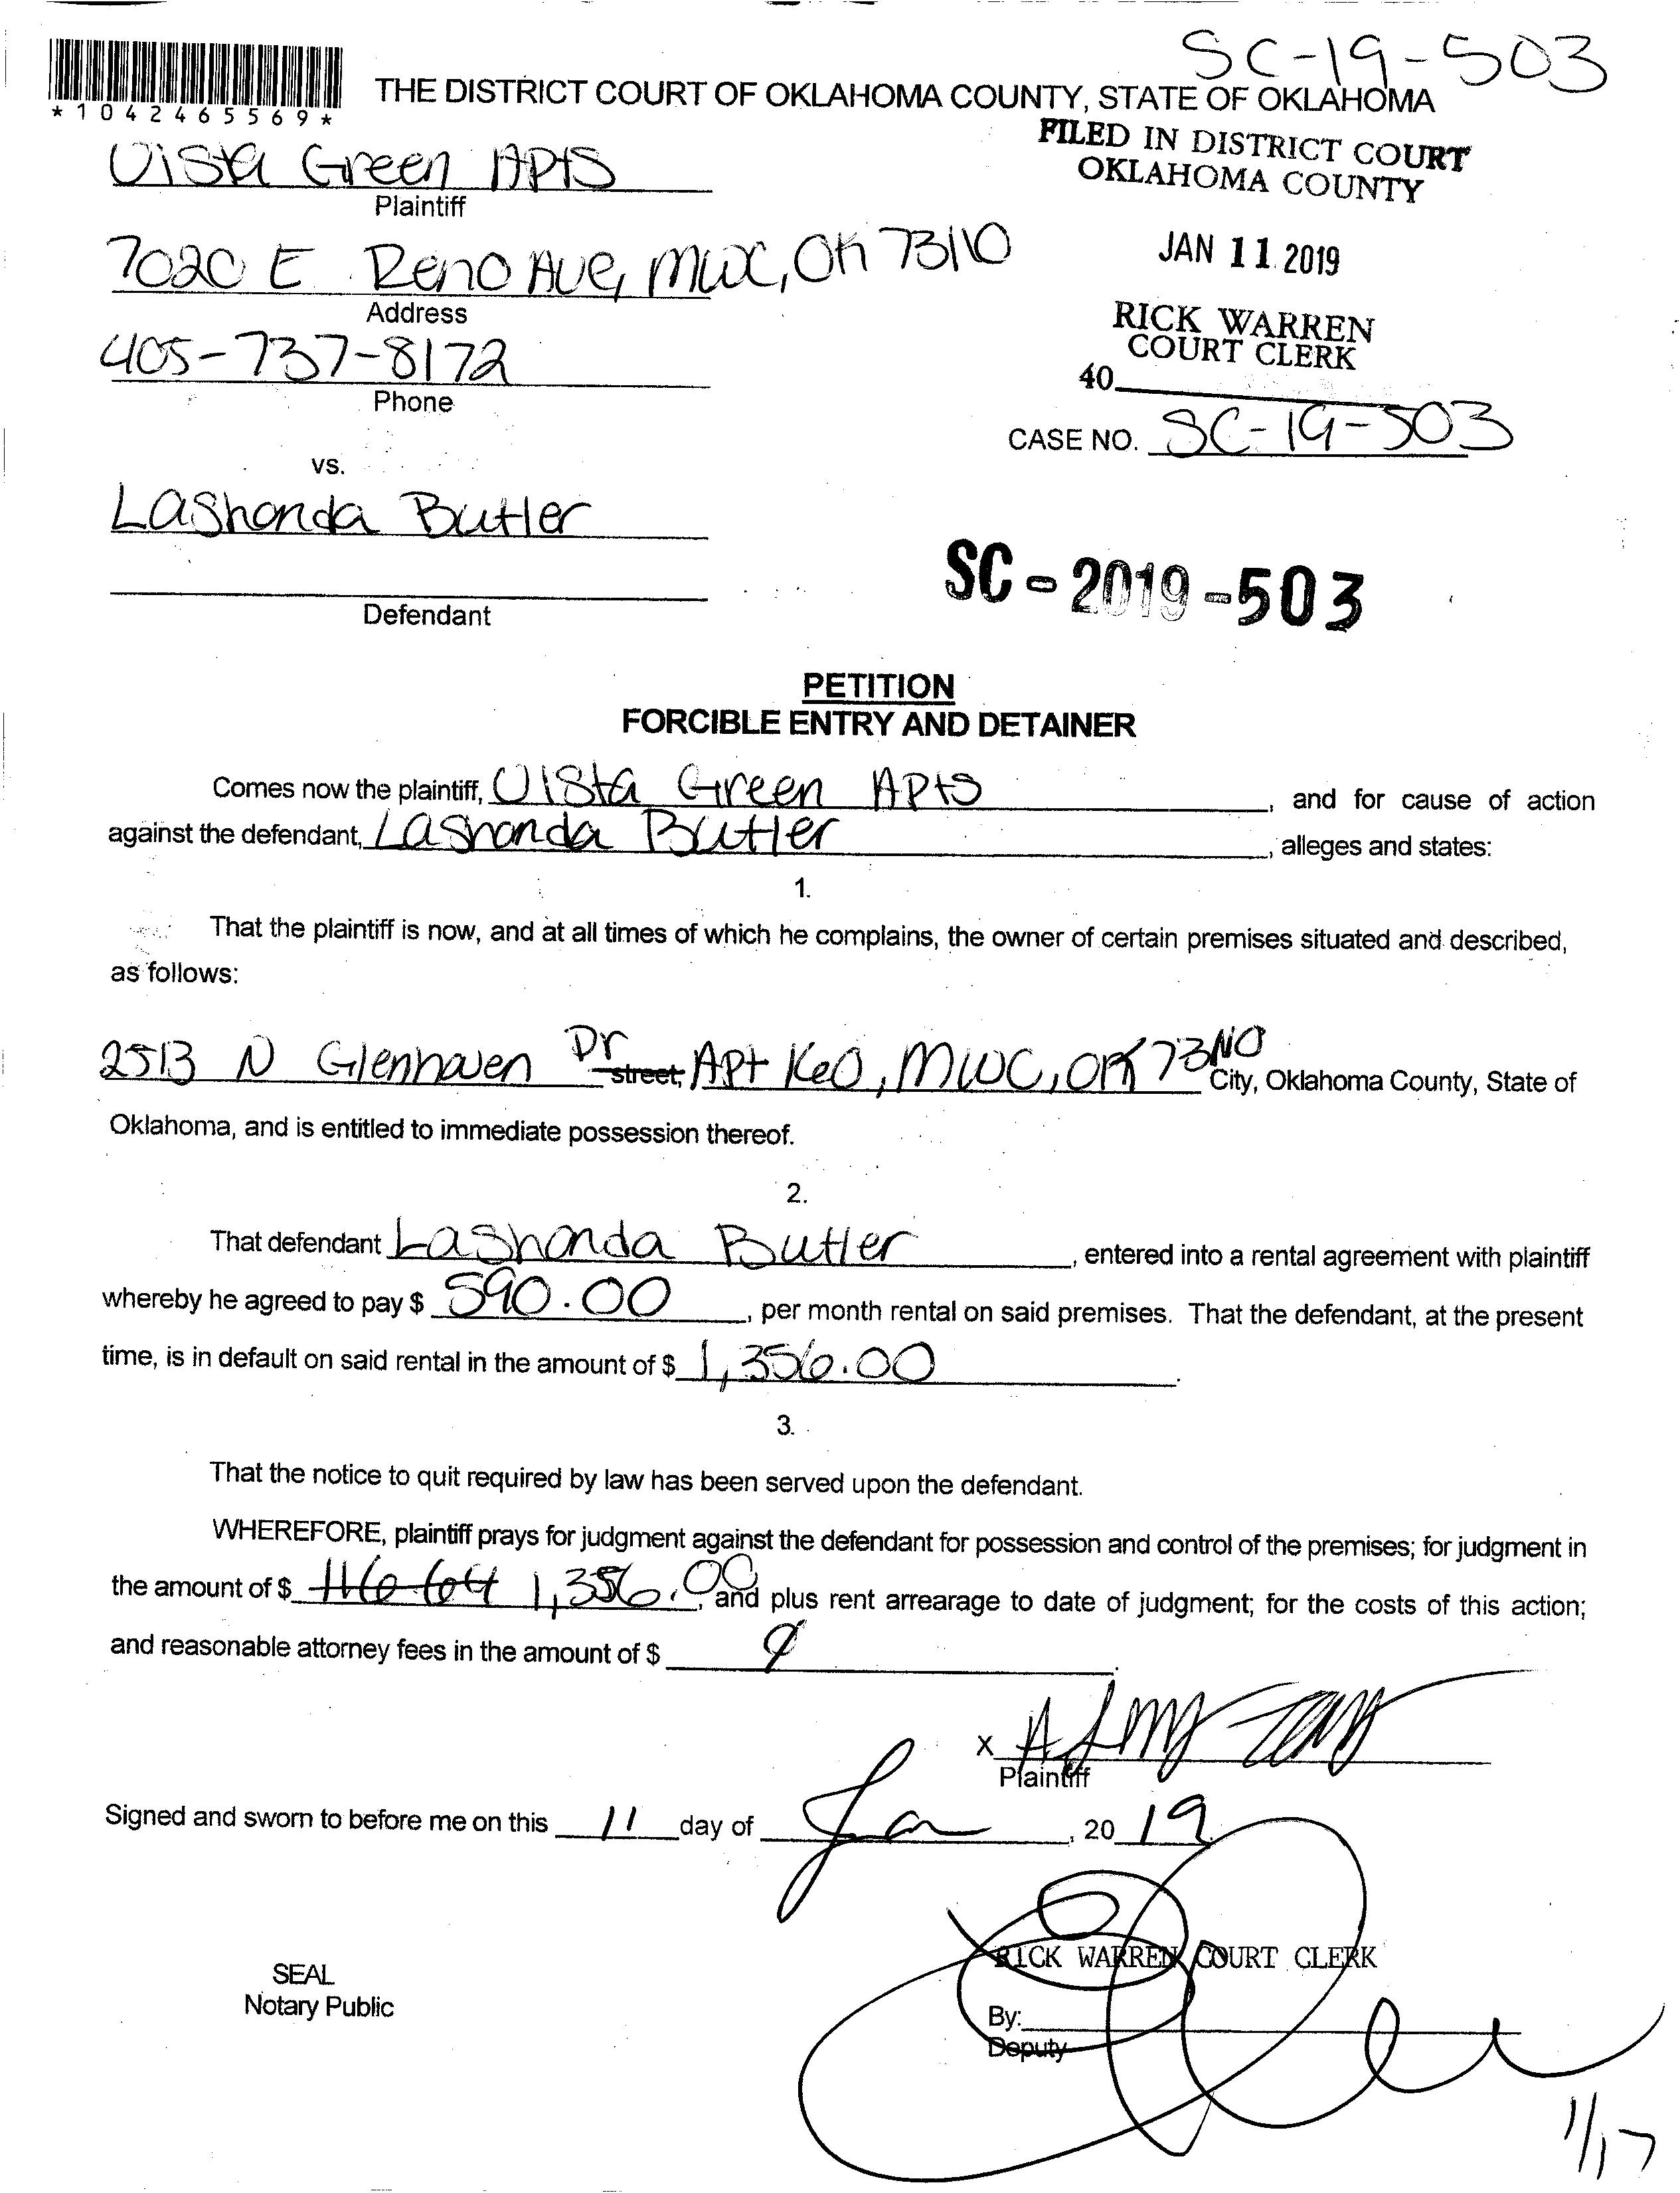 SC-19-503
*1042465569*
THE DISTRICT COURT OF OKLAHOMA COUNTY, STATE OF OKLAHOMA
FILED IN DISTRICT COURT
OKLAHOMA COUNTY
Vista Green Apts
Plaintiff
7020 E Reno Ave, MWC, OK 73110
Address
JAN 11 2019
RICK WARREN
COURT CLERK
405-737-8172
Phone
40
CASE NO. SC-19-503
vs.
LaShonda Butler
Defendant
SC-2019-503
PETITION
FORCIBLE ENTRY AND DETAINER
Comes now the plaintiff, Vista Green Apts, and for cause of action
against the defendant, LaShonda Butler, alleges and states:
1.
That the plaintiff is now, and at all times of which he complains, the owner of certain premises situated and described,
as follows:
2513 N Glenhaven Dr street, Apt, MWC, OK 73110 City, Oklahoma County, State of
Oklahoma, and is entitled to immediate possession thereof.
2.
That defendant LaShonda Butler, entered into a rental agreement with plaintiff
whereby he agreed to pay $ 590.00, per month rental on said premises. That the defendant, at the present
time, is in default on said rental in the amount of $ 1,356.00.
3.
That the notice to quit required by law has been served upon the defendant.
WHEREFORE, plaintiff prays for judgment against the defendant for possession and control of the premises; for judgment in
the amount of $ 1,356.00, and plus rent arrearage to date of judgment; for the costs of this action;
and reasonable attorney fees in the amount of $
X
Plaintiff
Signed and sworn to before me on this 11 day of Jan, 2019
RICK WARREN COURT CLERK
SEAL
Notary Public
By:
Deputy
1/17